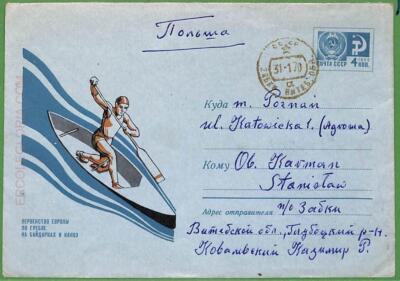 Польша
СССР
31-1 70
ПОЧТА СССР
4 КОП.
Куда m. Poznań
ul. Katowicka 1. (Agroma)
Кому Ob. Karman
Stanisław
Адрес отправителя п/о Забки
Витебской обл., Глубоцкий р-н.
Ковалевский Казимир Р.
ПЕРВЕНСТВО ЕВРОПЫ
ПО ГРЕБЛЕ
НА БАЙДАРКАХ И КАНОЭ